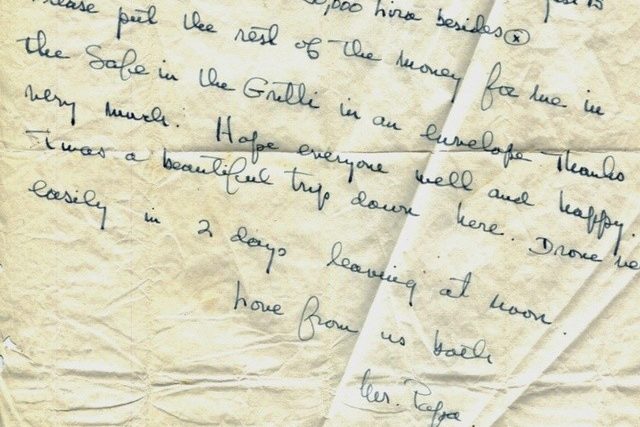 0,000 Lira besides ⓧ
Please put the rest of the money for me in
the Safe in the Gritti in an envelope Thanks
very much. Hope everyone well and happy.
It was a beautiful trip down here. Drove
easily in 2 days leaving at noon.
Love from us both
Mr. Papa